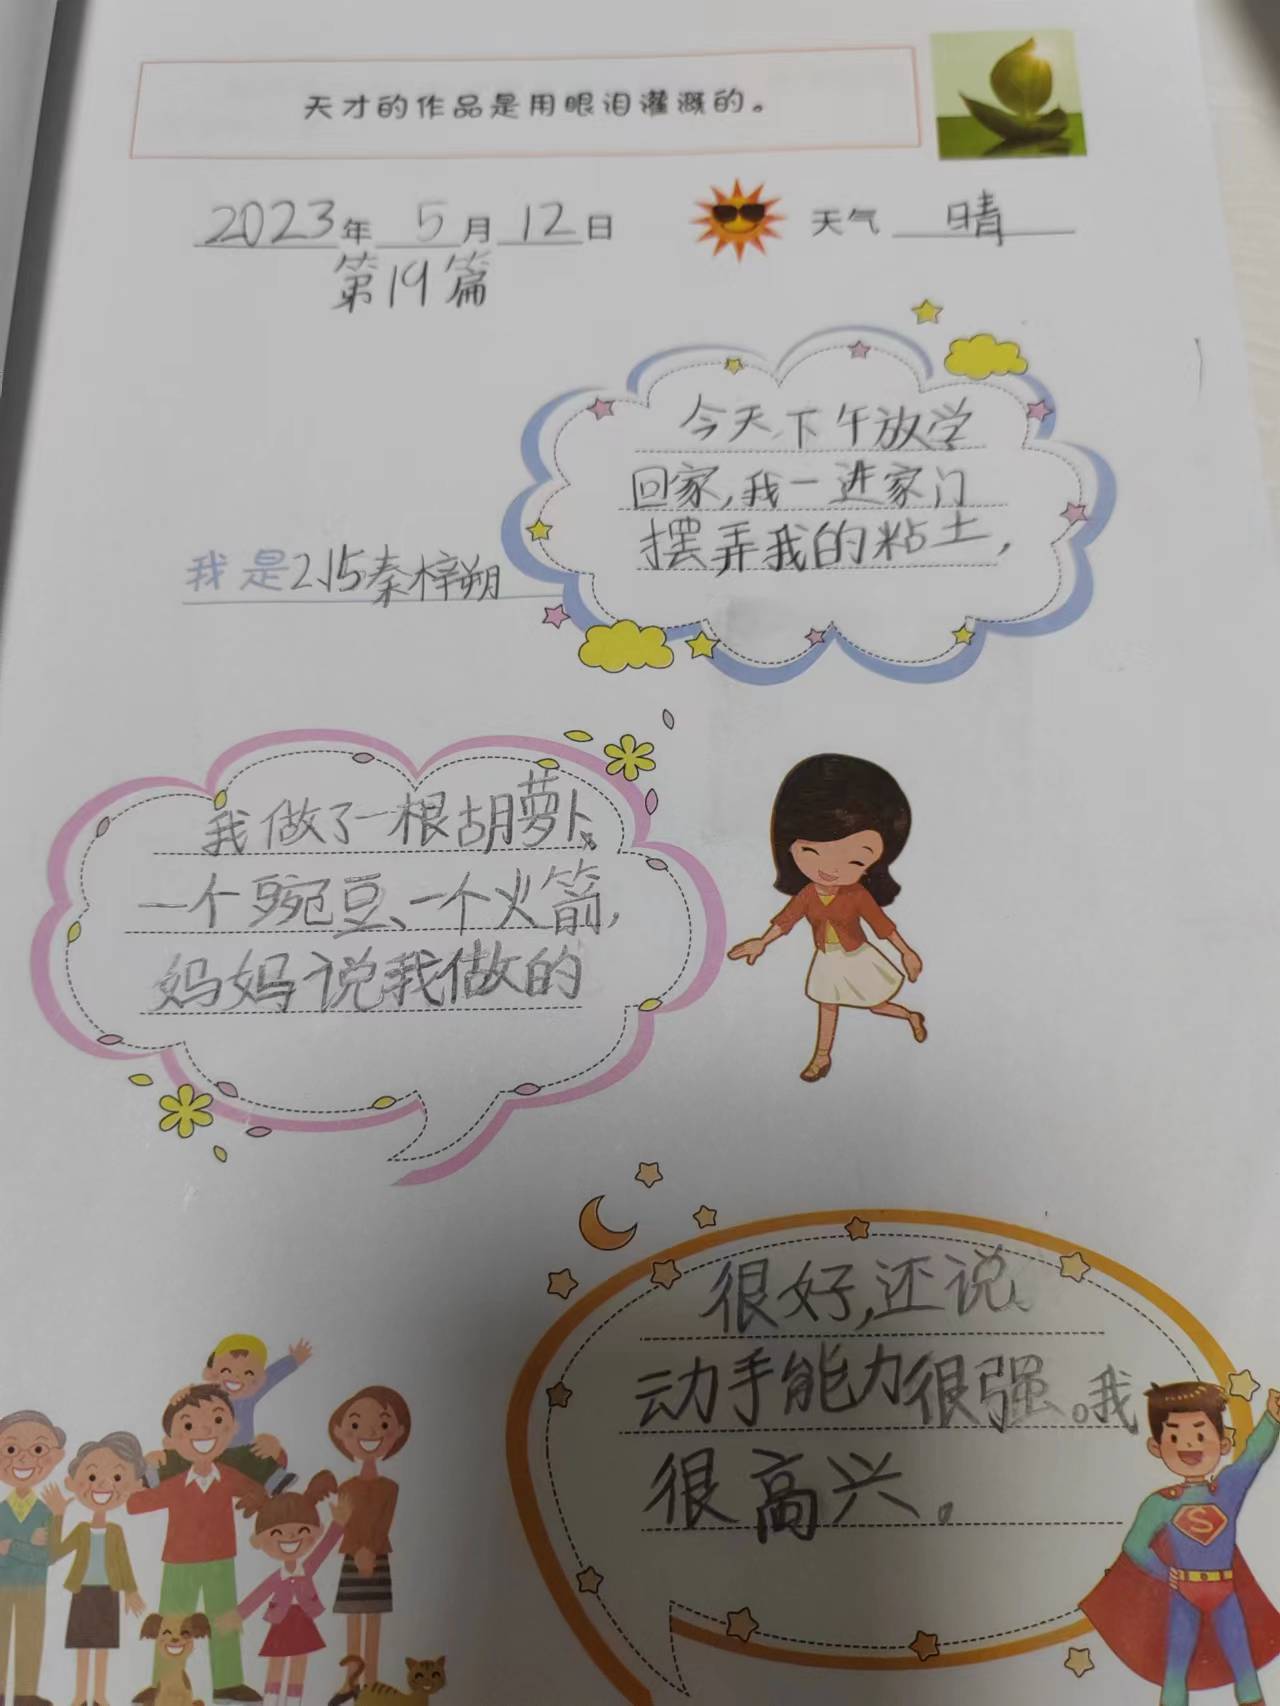 天才的作品是用眼泪灌溉的。
2023年 5月12日 天气 晴
第19篇
今天下午放学
回家,我一进家门
摆弄我的粘土,
我是215秦梓朔
我做了一根胡萝卜、
一个豌豆、一个火箭,
妈妈说我做的
很好,还说
动手能力很强。我
很高兴。
S